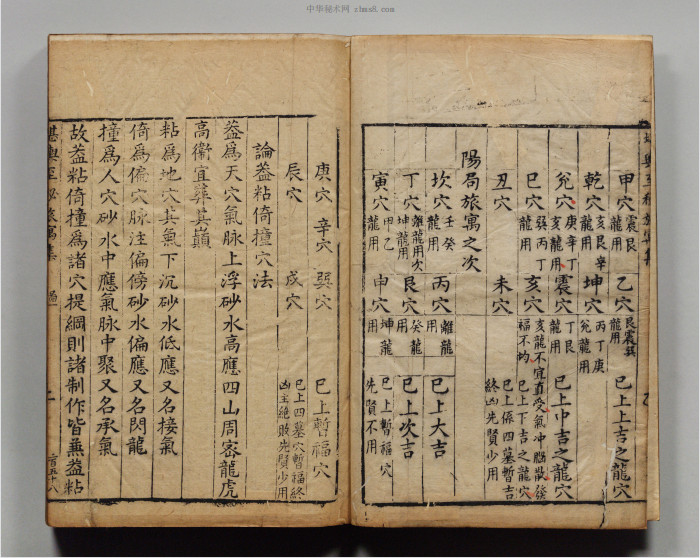 中华秘术网 zhms8.com
甲穴 震艮龍用 乙穴 艮震巽龍用 已上上吉之龍穴
乾穴 亥艮辛龍用 坤穴 丙丁庚兌龍用
兌穴 庚辛丁亥龍用 震穴 丁艮亥龍用 已上中吉之龍穴
巳穴 巽丙丁龍用 亥穴 亥龍不宜直受氣冲腦散發福不均 已上下吉之龍穴
丑穴 未穴 已上係四墓暫吉終凶先賢少用
陽局旅寓之次
坎穴 壬癸龍用 丙穴 離龍用 已上大吉
丁穴 離龍用次坤龍用 艮穴 癸龍用 已上次吉
寅穴 甲乙龍用 申穴 坤龍用 已上暫福穴先賢不用
庚穴 辛穴 巽穴 已上暫福穴
辰穴 戌穴 已上四墓穴暫福終凶主絶敗先賢少用
論葢粘倚撞穴法
葢爲天穴氣脉上浮砂水高應四山周密龍虎
高衞宜葬其巔
粘爲地穴其氣下沉砂水低應又名接氣
倚爲偏穴脉注偏傍砂水偏應又名閃龍
撞爲人穴砂水中應氣脉中聚又名承氣
故葢粘倚撞爲諸穴提綱則諸制作皆無葢粘
堪輿至秘旅寓集
二百五十八